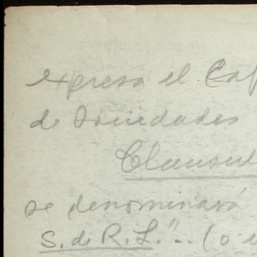 expresa el Cap
de Sociedades
Clausul
se denominará
S. de R. L."... (o e